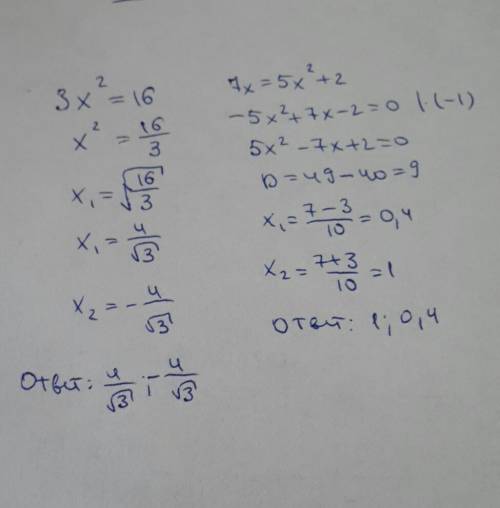 3x² = 16
x² = 16/3
x₁ = √(16/3)
x₁ = 4/√3
x₂ = - 4/√3
Ответ: 4/√3 ; - 4/√3
7x = 5x² + 2
-5x² + 7x - 2 = 0 | · (-1)
5x² - 7x + 2 = 0
D = 49 - 40 = 9
x₁ = (7 - 3)/10 = 0,4
x₂ = (7 + 3)/10 = 1
Ответ: 1; 0,4